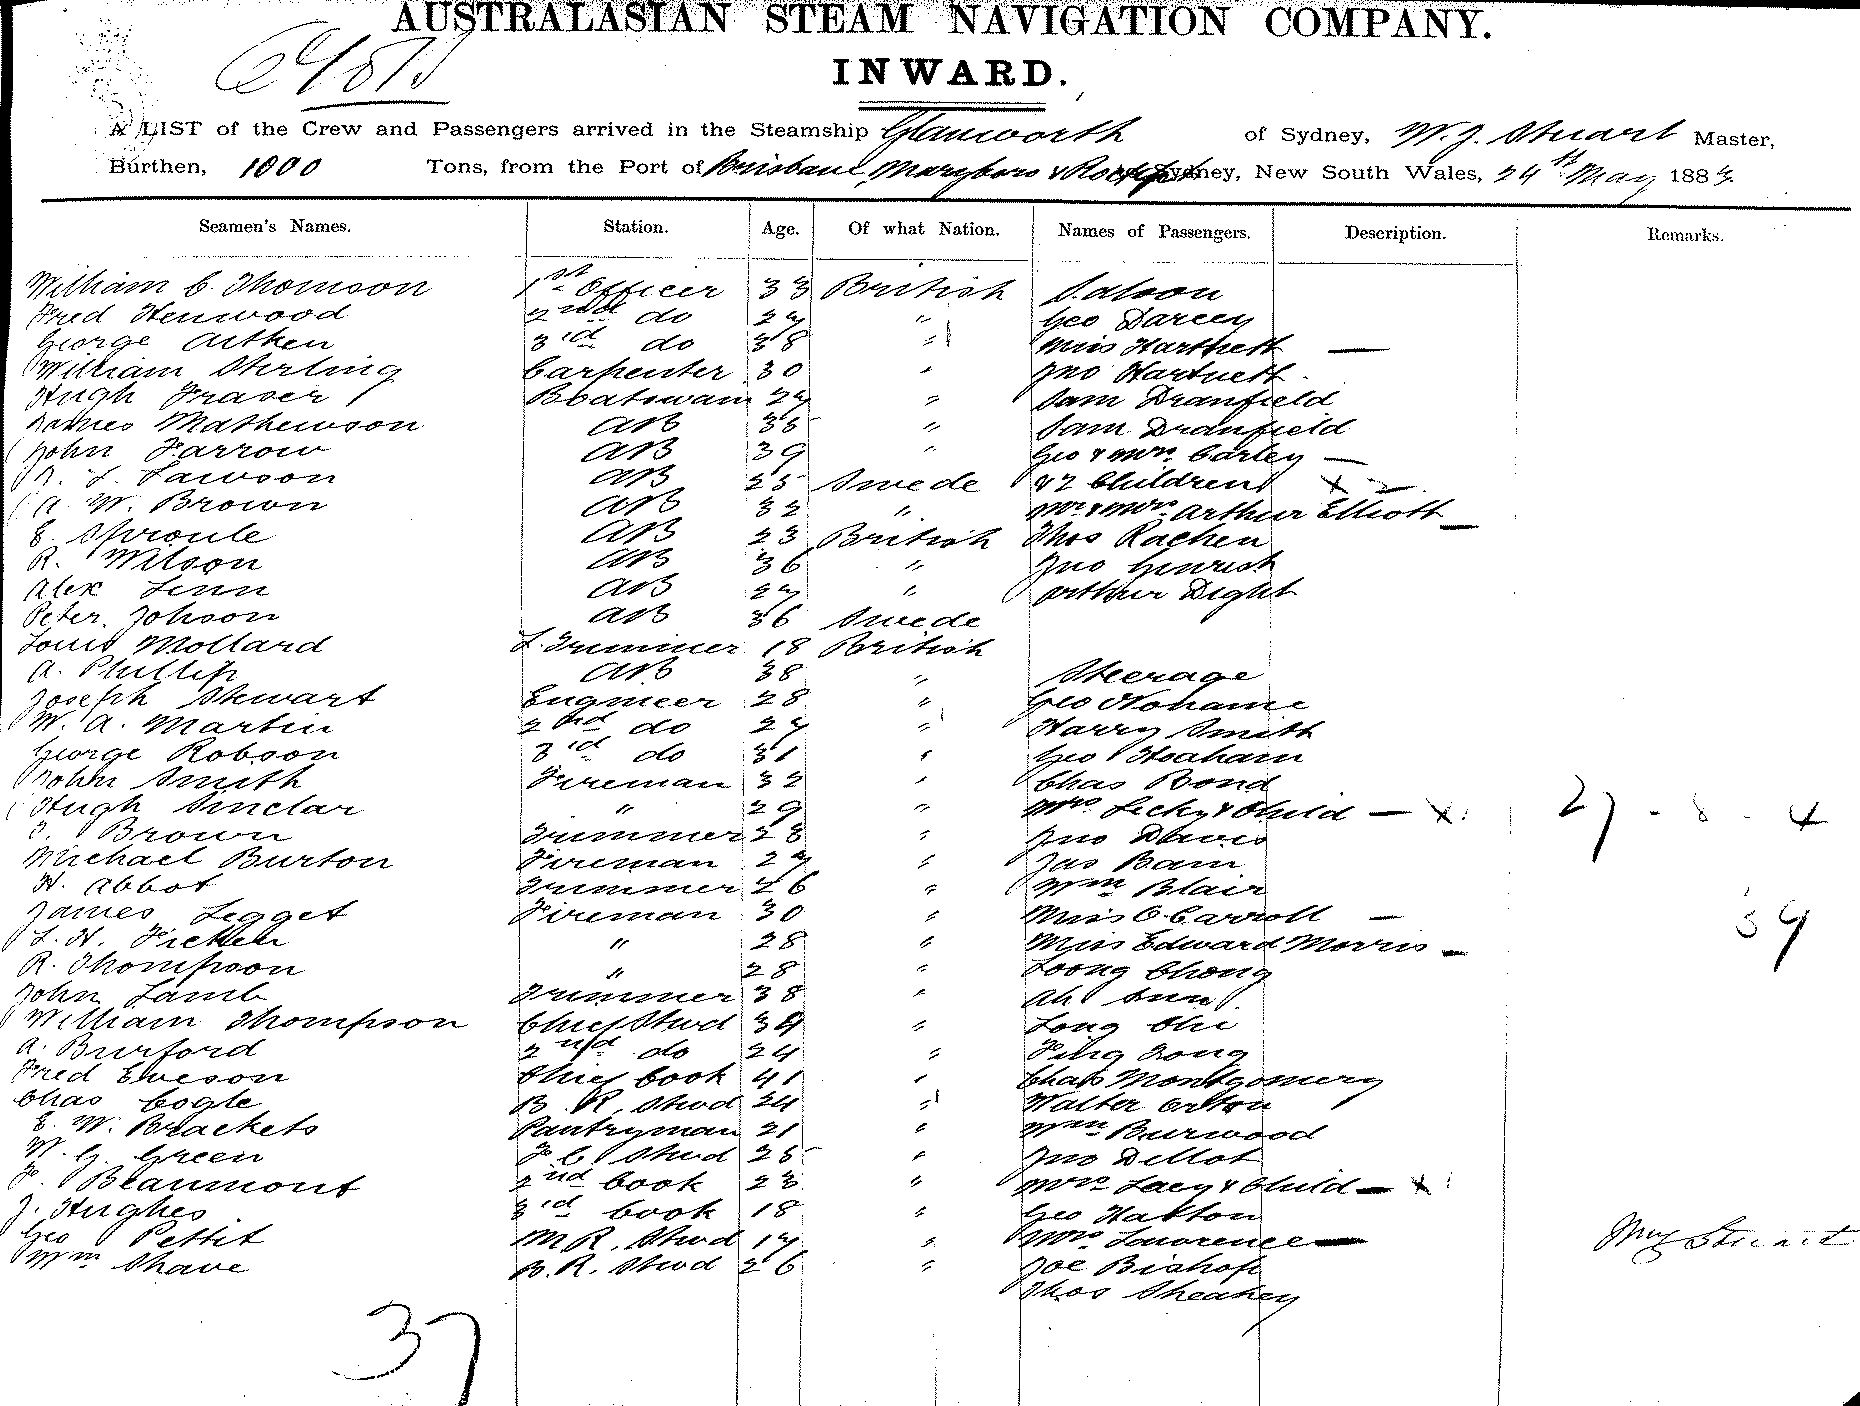 AUSTRALASIAN STEAM NAVIGATION COMPANY.
INWARD.
A LIST of the Crew and Passengers arrived in the Steamship Glanworth of Sydney, W. J. Stuart Master,
Burthen, 1000 Tons, from the Port of Brisbane, Maryboro & Sydney, New South Wales, 24th May 1883
Seamen's Names. Station. Age. Of what Nation. Names of Passengers. Description. Remarks.
William C. Thomson 1st Officer 33 British Saloon
Fred Henwood 2nd do 27 " Geo Darcey
George Aitken 3rd do 38 " Miss Hartnett —
William Sterling Carpenter 30 " Jno Hartnett
Hugh Fraser Boatswain 27 " Sam Dranfield
James Mathewson AB 35 " Sam Dranfield
John Farrow AB 39 " Geo & Mrs. Carley —
L. Lawson AB 25 Swede & 2 Children x 2
A. W. Brown AB 32 " Mr & Mrs. Arthur Elliott —
E. Sproule AB 23 British Thos Rachen
R. Wilson AB 36 " Jno Ginrich
Alex Linn AB 27 " Arthur Dight
Peter Johson AB 36 Swede
Louis Mollard L. Trimmer 18 British
A. Phillip AB 38 " Steerage
Joseph Stewart Engineer 28 " Geo
W. A. Martin 2nd do 27 " Harry Smith
George Robson 3rd do 31 " Geo Hoaham
John Smith Fireman 32 " Chas Bond
Hugh Sinclar " 29 " Mrs Lecky & Child — x 27 - 8 - 4
Brown Trimmer 23 " Jno Davis
Michael Burton Fireman 27 " Jas Bam
H. Abbot Trimmer 26 " Wm Blair
James Legget Fireman 30 " Miss O. Carroll — 39
L. H. " 28 " Miss Edward Morris —
R. Thompson " 28 " Loong Chong
John Lamb Trimmer 38 " Ah Sun
William Thompson Chief Stwd 34 " Long Che
A. Burford 2nd do 24 " Ping Gong
Fred Eveson Chief Cook 41 " Chas Montgomery
Chas Cogle B. R. Stwd 24 " Walter Orton
E. W. Brackets Pantryman 21 " Wm Burwood
W. G. Green F C Stwd 25 " Jno Dellot
F. Beaumont 2nd Cook 23 " Mrs. Lacy & Child — x
J. Hughes 3rd Cook 18 " Geo Hatton
Geo Pettit M R. Stwd 17 " Mrs Lawrence —
Wm Shave B. R. Stwd 26 " Joe Bishop
Thos Sheahey
Stuart
37